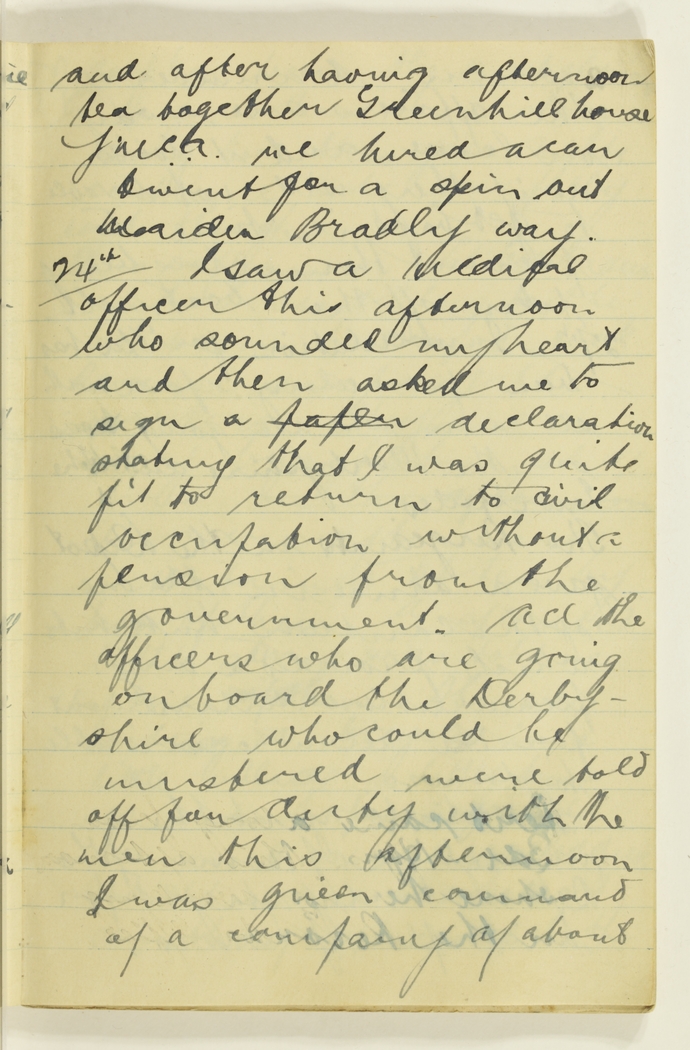 and after having afternoon
tea together Greenhill house
Y.M.C.A. we hired a car
& went for a spin out
Maiden Bradly way.
24th I saw a medical
officer this afternoon
who sounded my heart
and then asked me to
sign a paper declaration
stating that I was quite
fit to return to civil
occupation without a
pension from the
government. All the
officers who are going
on board the Derby-
shire who could be
mustered were told
off for duty with the
men this afternoon
I was given command
of a company of about